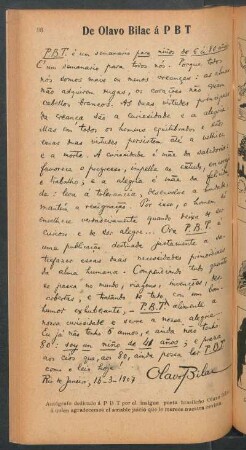 De Olavo Bilac á P B T
P.B.T. é um semanario para niños de 6 a 80 años.
É um semanario para todos nós. Porque todos
nós somos mais ou menos creanças: as almas
não adquirem rugas, os corações não ganham
cabellos brancos. As duas virtudes principaes
da creança são a curiosidade e a alegria.
Mas em todos os homens equilibrados e sãos
essas duas virtudes persistem até a velhice
e a morte. A curiosidade é mãe da sabedoria:
favorece o progresso, impelle ao estudo,
e trabalho; e a alegria é mãe da
de: leva á tolerancia, desenvolve a bondade,
mantém a resignação. Por isso, o homem só
envelhece verdadeiramente quando deixa de ser
curioso e de ser alegre... Ora P.B.T. é
uma publicação destinada justamente a
satisfazer essas duas necessidades primordiaes
da alma humana. Compendiando tudo quanto
se passa no mundo, viagens, invenções,
cobertas, e tratando de tudo com um bom
humor exuberante, P.B.T. alimenta a
nossa curiosidade e serve a nossa alegria.
Eu já não tenho 6 annos, e ainda não tenho
80: sou um niño de 41 años; e
aos céos que, aos 80, ainda possa ler P.B.T.
com o leio hoje.
Rio de Janeiro, 1907
Olavo Bilac
Autógrafo dedicado á P B T por el insigne poeta brasileño Olavo Bilac
á quien agradecemos el amable juicio que le merece nuestra revista